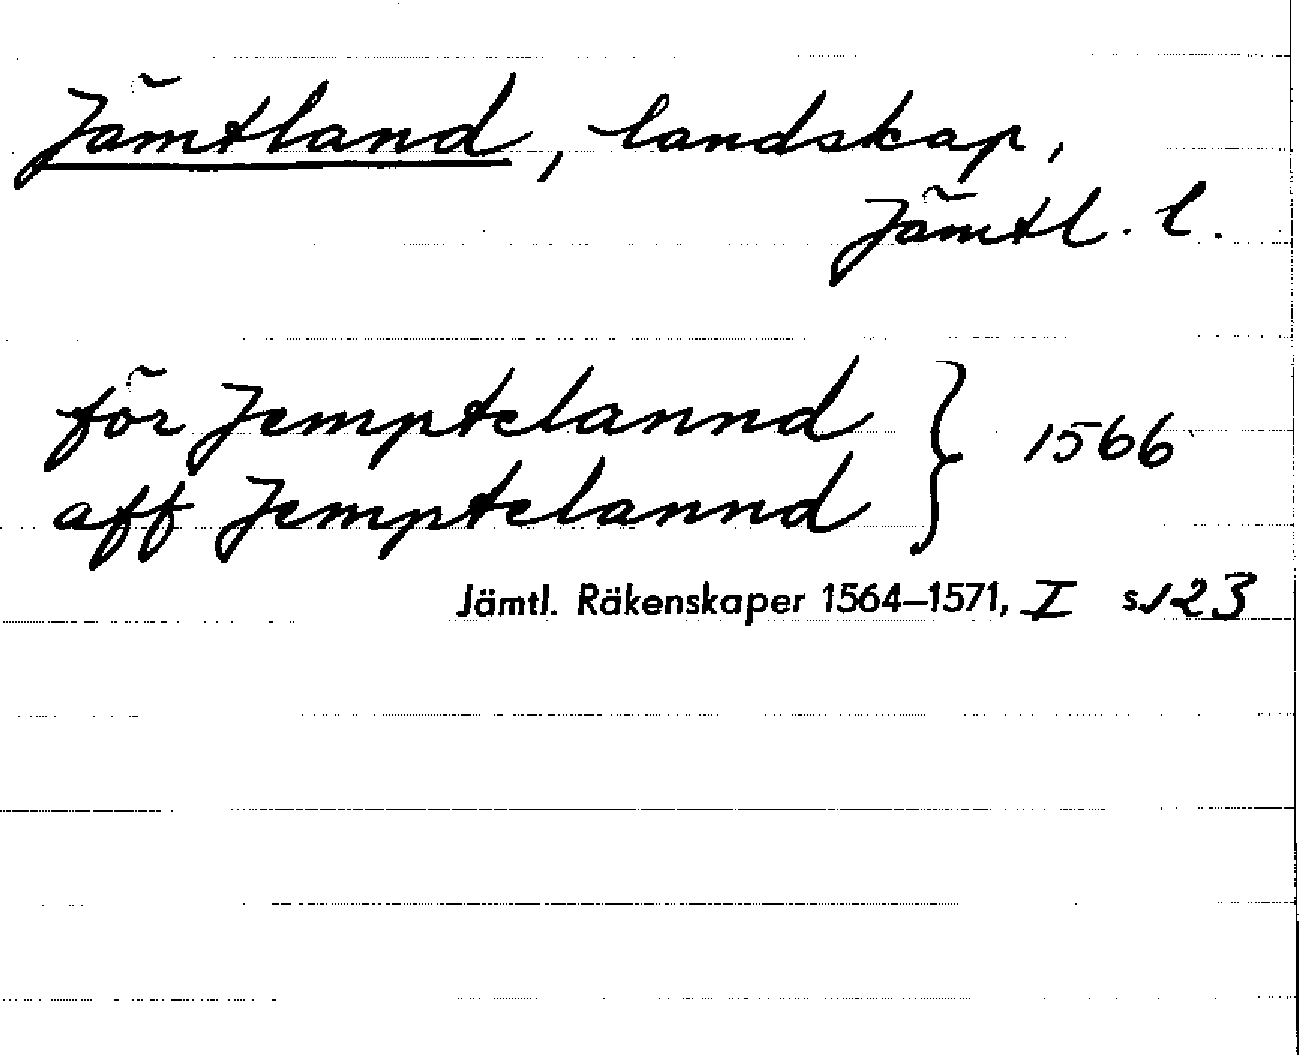 Jämtland, landskap,
Jämtl. l.
för Jemptelannd } 1566
aff Jemptelannd
Jämtl. Räkenskaper 1564–1571, I s. 123